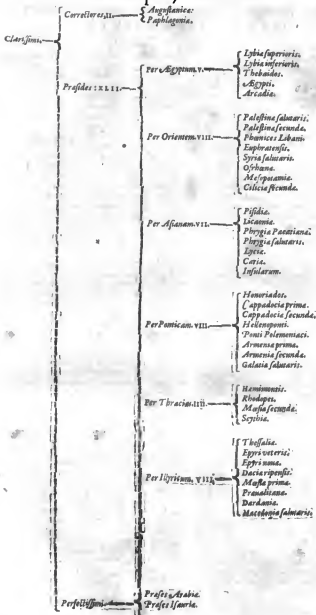 Clarissimi.
Correctores, II.
Augustanice:
Paphlagonia.
Præsides: XLII.
Per Ægyptum. V.
Lybia superioris.
Lybia inferioris.
Thebaidos.
Ægypti.
Arcadia.
Per Orientem. VIII.
Palestina salutaris.
Palestina secunda.
Phœnices Lobani.
Euphratensis.
Syria salutaris.
Osrhœna.
Mesopotamia.
Cilicia secunda.
Per Asianam. VII.
Pisidia.
Licaonia.
Phrygia Pacatiana.
Phrygia salutaris.
Lycia.
Caria.
Insularum.
Per Ponticam. VIII.
Honoriados.
Cappadocia prima.
Cappadocia secunda.
Hellenoponti.
Ponti Polemoniaci.
Armenia prima.
Armenia secunda.
Galatia salutaris.
Per Thracias. IIII.
Hæmimontis.
Rhodopes.
Mœsia secunda.
Scythia.
Per Illyricum. VIII.
Thessalia.
Epyri veteris.
Epyri noua.
Dacia ripensis.
Mœsia prima.
Prævalitana.
Dardania.
Macedonia salutaris.
Perfectissimi.
Præses Arabia.
Præses Isauria.